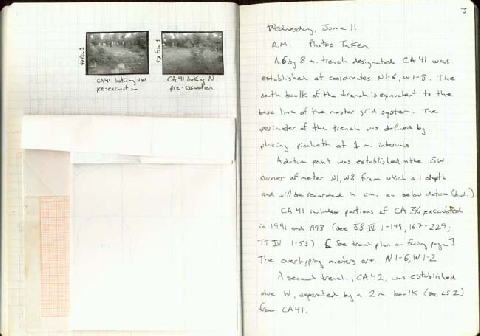 CA41 looking NW
pre-excavation
CA41 looking N
pre-excavation
3
Wednesday, June 11
A.M. Photos Taken
A 6 by 8 m. trench designated CA 41 was
established at coordinates N1-6, W1-8. The
south baulk of the trench is equivalent to the
base line of the master grid system. The
perimeter of the trench was defined by
placing at 1 m. intervals
A datum point was established in the SW
corner of meter N1, W8 from which all depth
and will be recorded in cm. as below datum (b.d.)
CA 41 portions of CA excavated
in 1991 and 1993 (see 1-149, 167-229;
1-53) [See trench plan on facing page]
The overlapping meters are N1-6, W1-2
A second trench, CA42, was established
due W, separated by a 2 m baulk (see 2)
from CA41.